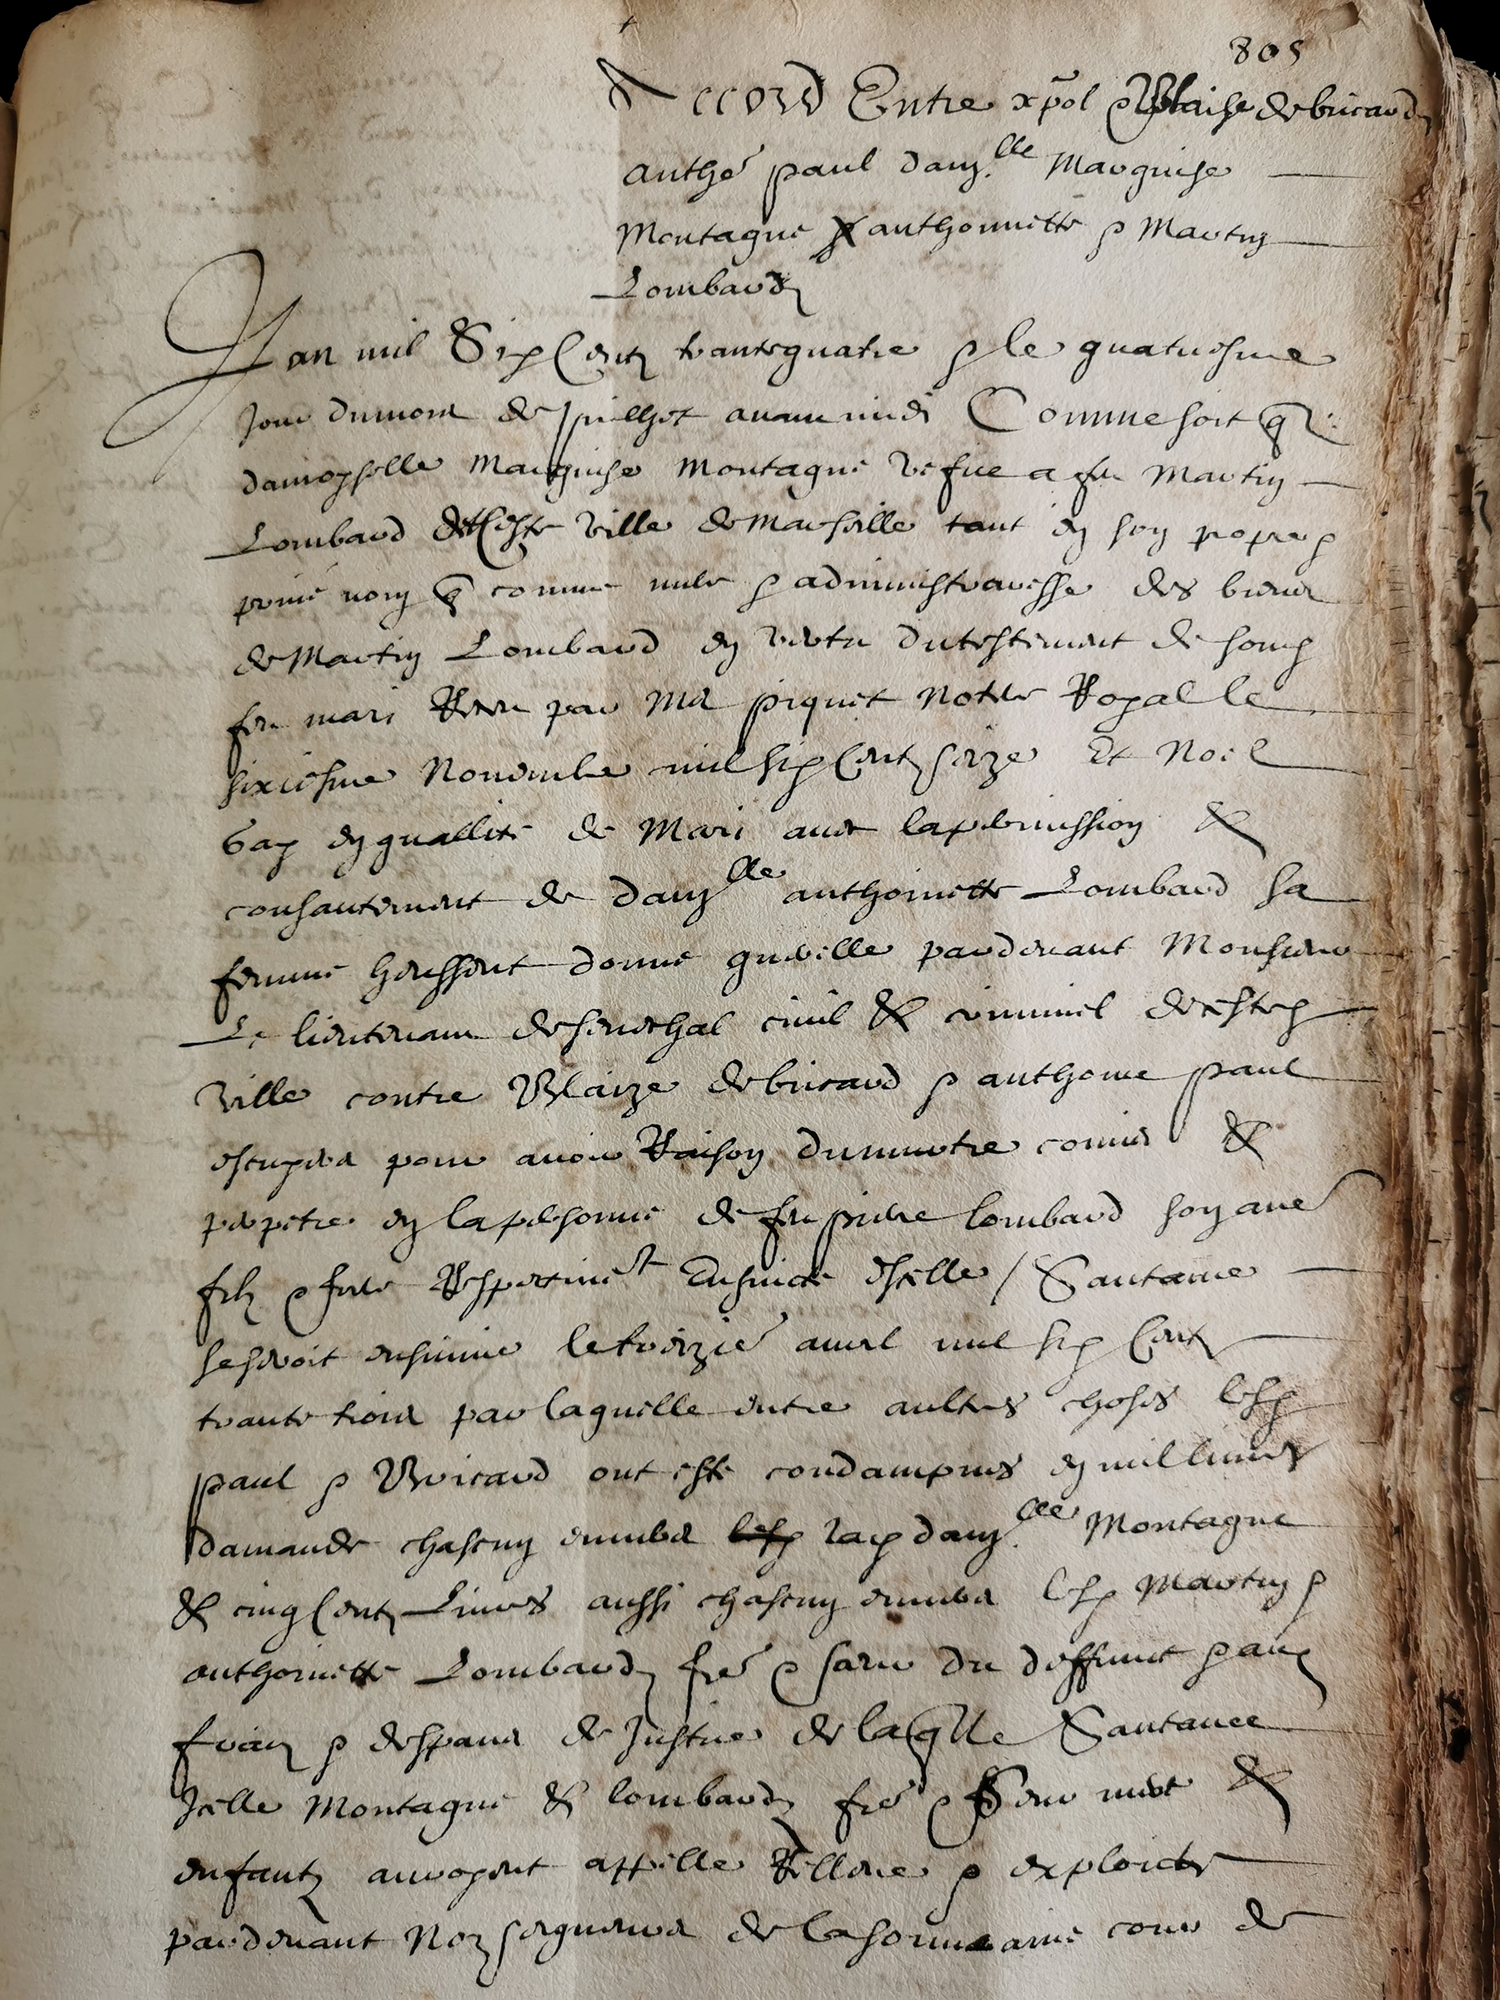 805
Accord Entre xpol & Blaise de bricard
anthe paul dam.lle Marguise
Montagne & anthonnette & Martin
Lombardz
L'an mil Six Centz trantequatre & le quatriesme
jour du mois de juilhet avant midi Comme soit que
damoyselle Marguise Montagne vefue a feu Martin
Lombard de ceste ville de Marseille tant en son propre &
privé nom que comme mere & administraresse des biens
de Martin Lombard en vertu du testement de son
feu mari Receu par Me piquet Notere Royal le
sixiesme Novembre mil six Centz seize Et Noel
Gay en quallité de Mari avec la permission &
consantement de dam.lle anthoinette Lombard sa
femme heussent donné querelle pardevant Monsieur
Le lieutenant de senechal civil & criminel de ceste
ville contre Blaize de bricard & anthoine paul
escuyers pour avoir Raison du murtre comis &
perpetre en la personne de feu pierre lombard son ane
filz & frere Respectivemt Ensuicte d'icelle / Santance
se seroit ensuivie le treizie avril mil six Cent
trante trois par laquelle entre aultres choses lesd
paul & Bricard ont esté condampnes en mil livres
damande chascung envers lad dam.lle Montagne
& cinq Centz Livres aussi chascung envers lesd Martin &
anthoinette Lombardz fre & sœur du deffunct & aux
fraiz & despans de justice de laqlle Santance
Icelle Montagne & lombardz fre & Seur mere &
enfantz auroyent appelle Rellevé & exploicte
pardevant Noz seigneurs de la souveraine cour de